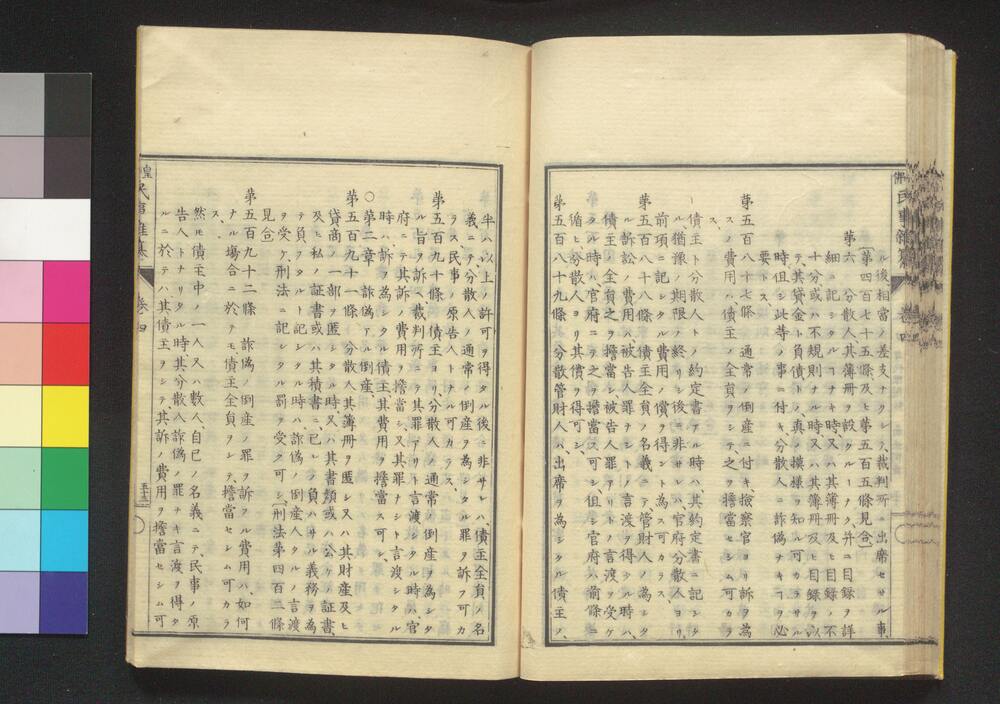 ル後相當ノ差支ナクシテ、裁判所ニ出席セサル事、
(第四百七十五條及ヒ第五百五條見合)
第六 分散人其簿冊ヲ設ケルーナク、并ニ目録ヲ詳
細ニ記シタルコナキ時又ハ其簿冊及ヒ目録ノ不
十分或ハ不規則ナル時、又ハ其簿冊及ヒ目録ヲ以
テ、其貸金ト負債トノ、真ノ模様ヲ知ル可カラサル
時但シ此等ノ事ニ付キ分散人ニ詐偽ナキコヲ必
要トス、
第五百八十七條 通常ノ倒産ニ付キ撿察官ヨリ訴ヲ為
スノ費用ハ、債主ノ全員ヲシテ、之ヲ擔當セシム可カラ
ス、
債主ト分散人トノ約定書アル時ハ、其約定書ニ記シタ
ル猶豫ノ期限ノ終リシ後ニ非サレハ、官府分散人ヨリ、
前項ニ記シタル費用ノ償ヲ得ントス可カラス、
第五百八十八條 債主全員ノ名義ニテ、管財人ノ為シタ
ル訴訟ノ費用ハ、被告人罪ナシトノ言渡ヲ得シ時ハ、
債主ノ全員之ヲ擔當シ、被告人罪アリトノ言渡ヲ受ケ
タル時ハ、官府ニテ之ヲ擔當ス可シ、但シ官府ハ前條ニ
循ヒ、分散人ヨリ、其償ヲ得可シ、
第五百八十九條 分散管財人ハ、出席ヲ為シタル債主ノ、
半ハ以上ノ許可ヲ得タル後ニ非サレハ、債主全員ノ名
義ニテ、分散人ノ通常ノ倒産ヲ為シタル罪ヲ訴フ可カ
ラス、民事ノ原告人トナル可カラス、
第五百九十條 債主ヨリ、分散人ノ通常ノ倒産ヲ為シタ
ル旨ヲ訴ヘ、裁判所ニテ、其罪アリト言渡シタル時ハ、官
府ニテ其訴ノ費用ヲ擔當シ、又其罪ナシト言渡シタル
時ハ、訴ヲ為シタル債主其費用ヲ擔當ス可シ、
○第二章 詐偽アル倒産、
第五百九十一條 分散人其簿冊ヲ匿シ、又ハ其財産及ヒ
貸高ノ一部ヲ匿シタル時、又ハ其書類或ハ公ケノ証書、
及ヒ私ノ証書或ハ其積書ニ、己レノ負ハサル義務ヲ為
テ負フタルト記シタル時ハ、詐偽ノ倒産人タルノ言渡
ヲ受ケ、刑法ニ記シタル罰ヲ受ク可シ、(刑法第四百二條
見合)
第五百九十二條 詐偽ノ倒産ノ罪ヲ訴フル費用ハ、如何
ナル塲合ニ於テモ、債主全員ヲシテ、擔當セシム可カラ
ス、
然レ𪜈債主中ノ一人又ハ數人、自已ノ名義ニテ、民事ノ原
告人トナリタル時、其分散人詐偽ノ罪ナキ言渡ヲ得タ
ルニ於テハ、其債主ヲシテ其訴ノ費用ヲ擔當セシム可
卷四